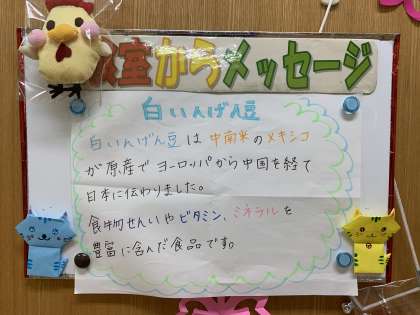 室からメッセージ
白いんげん豆
白いんげん豆は中南米のメキシコ
が原産でヨーロッパから中国を経て
日本に伝わりました。
食物せんいやビタミン、ミネラルを
豊富に含んだ食品です。